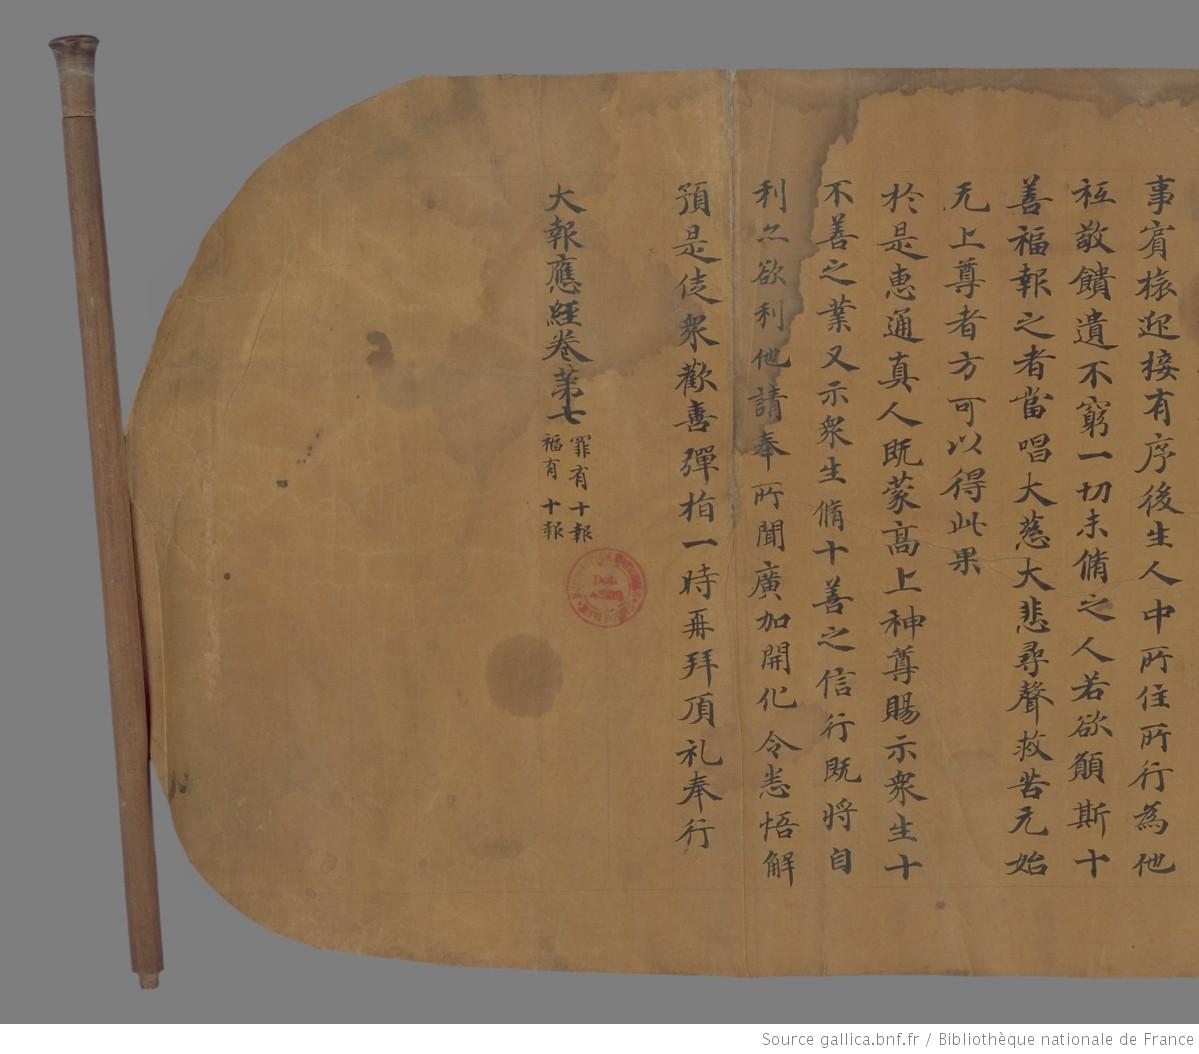 事賓旅迎接有序後生人中所住所行為他
祗敬饋遺不窮一切未脩之人若欲願斯十
善福報之者當唱大慈大悲尋聲救苦元始
无上尊者方可以得此果
於是惠通真人既蒙高上神尊賜示衆生十
不善之業又示衆生脩十善之信行既將自
利亦欲利他請奉所聞廣加開化令悉悟解
預是徒衆歡喜彈指一時再拜頂礼奉行
大報應經卷第七
罪有十報
福有十報
Don
Source gallica.bnf.fr / Bibliothèque nationale de France